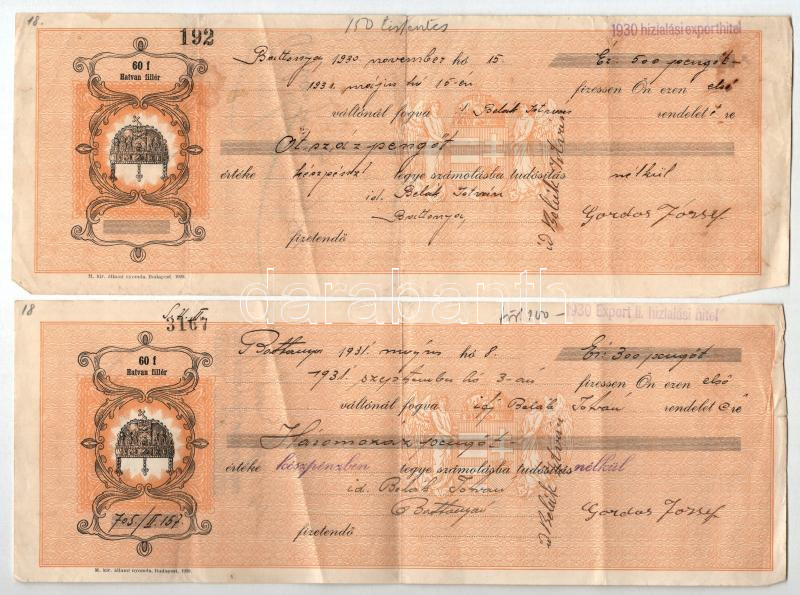 18.
192
1930 hizlalási exporthitel
60 f
Hatvan fillér
Battonya, 1930. november hó 15.
Ér: 500 pengőt
1931. május hó 15-én
fizessen Ön ezen első
váltónál fogva
Belák István
rendelet re
Ötszáz pengőt
értéke készpénz
tegye számolásba tudósítás nélkül
id. Belák István
Battonya
id Belák István
Gordos József
fizetendő
M. kir. állami nyomda, Budapest.
darabanth
18
3167
1930 Export II. hizlalási hitel
60 f
Hatvan fillér
Battonya 1931. május hó 8.
Ér: 300 pengőt
1931. szeptember hó 3-án
fizessen Ön ezen első
váltónál fogva ifj Belák István
rendelet e re
Háromszáz pengőt
értéke készpénzben tegye számolásba tudósítás nélkül
id. Belák István
Battonya
id Belák István
Gordos József
705./II.157.
fizetendő
M. kir. állami nyomda, Budapest.